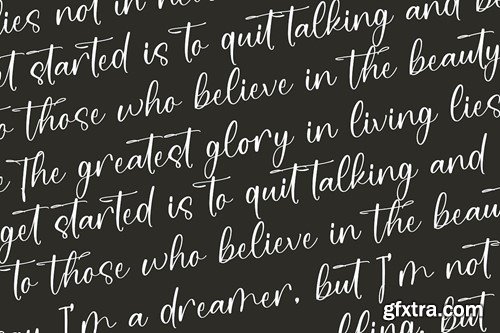 lies not in never
get started is to quit talking and be
to those who believe in the beauty
The greatest glory in living lies
get started is to quit talking and
to those who believe in the beau
I'm a dreamer, but I'm not
talking, but
gfxtra.com